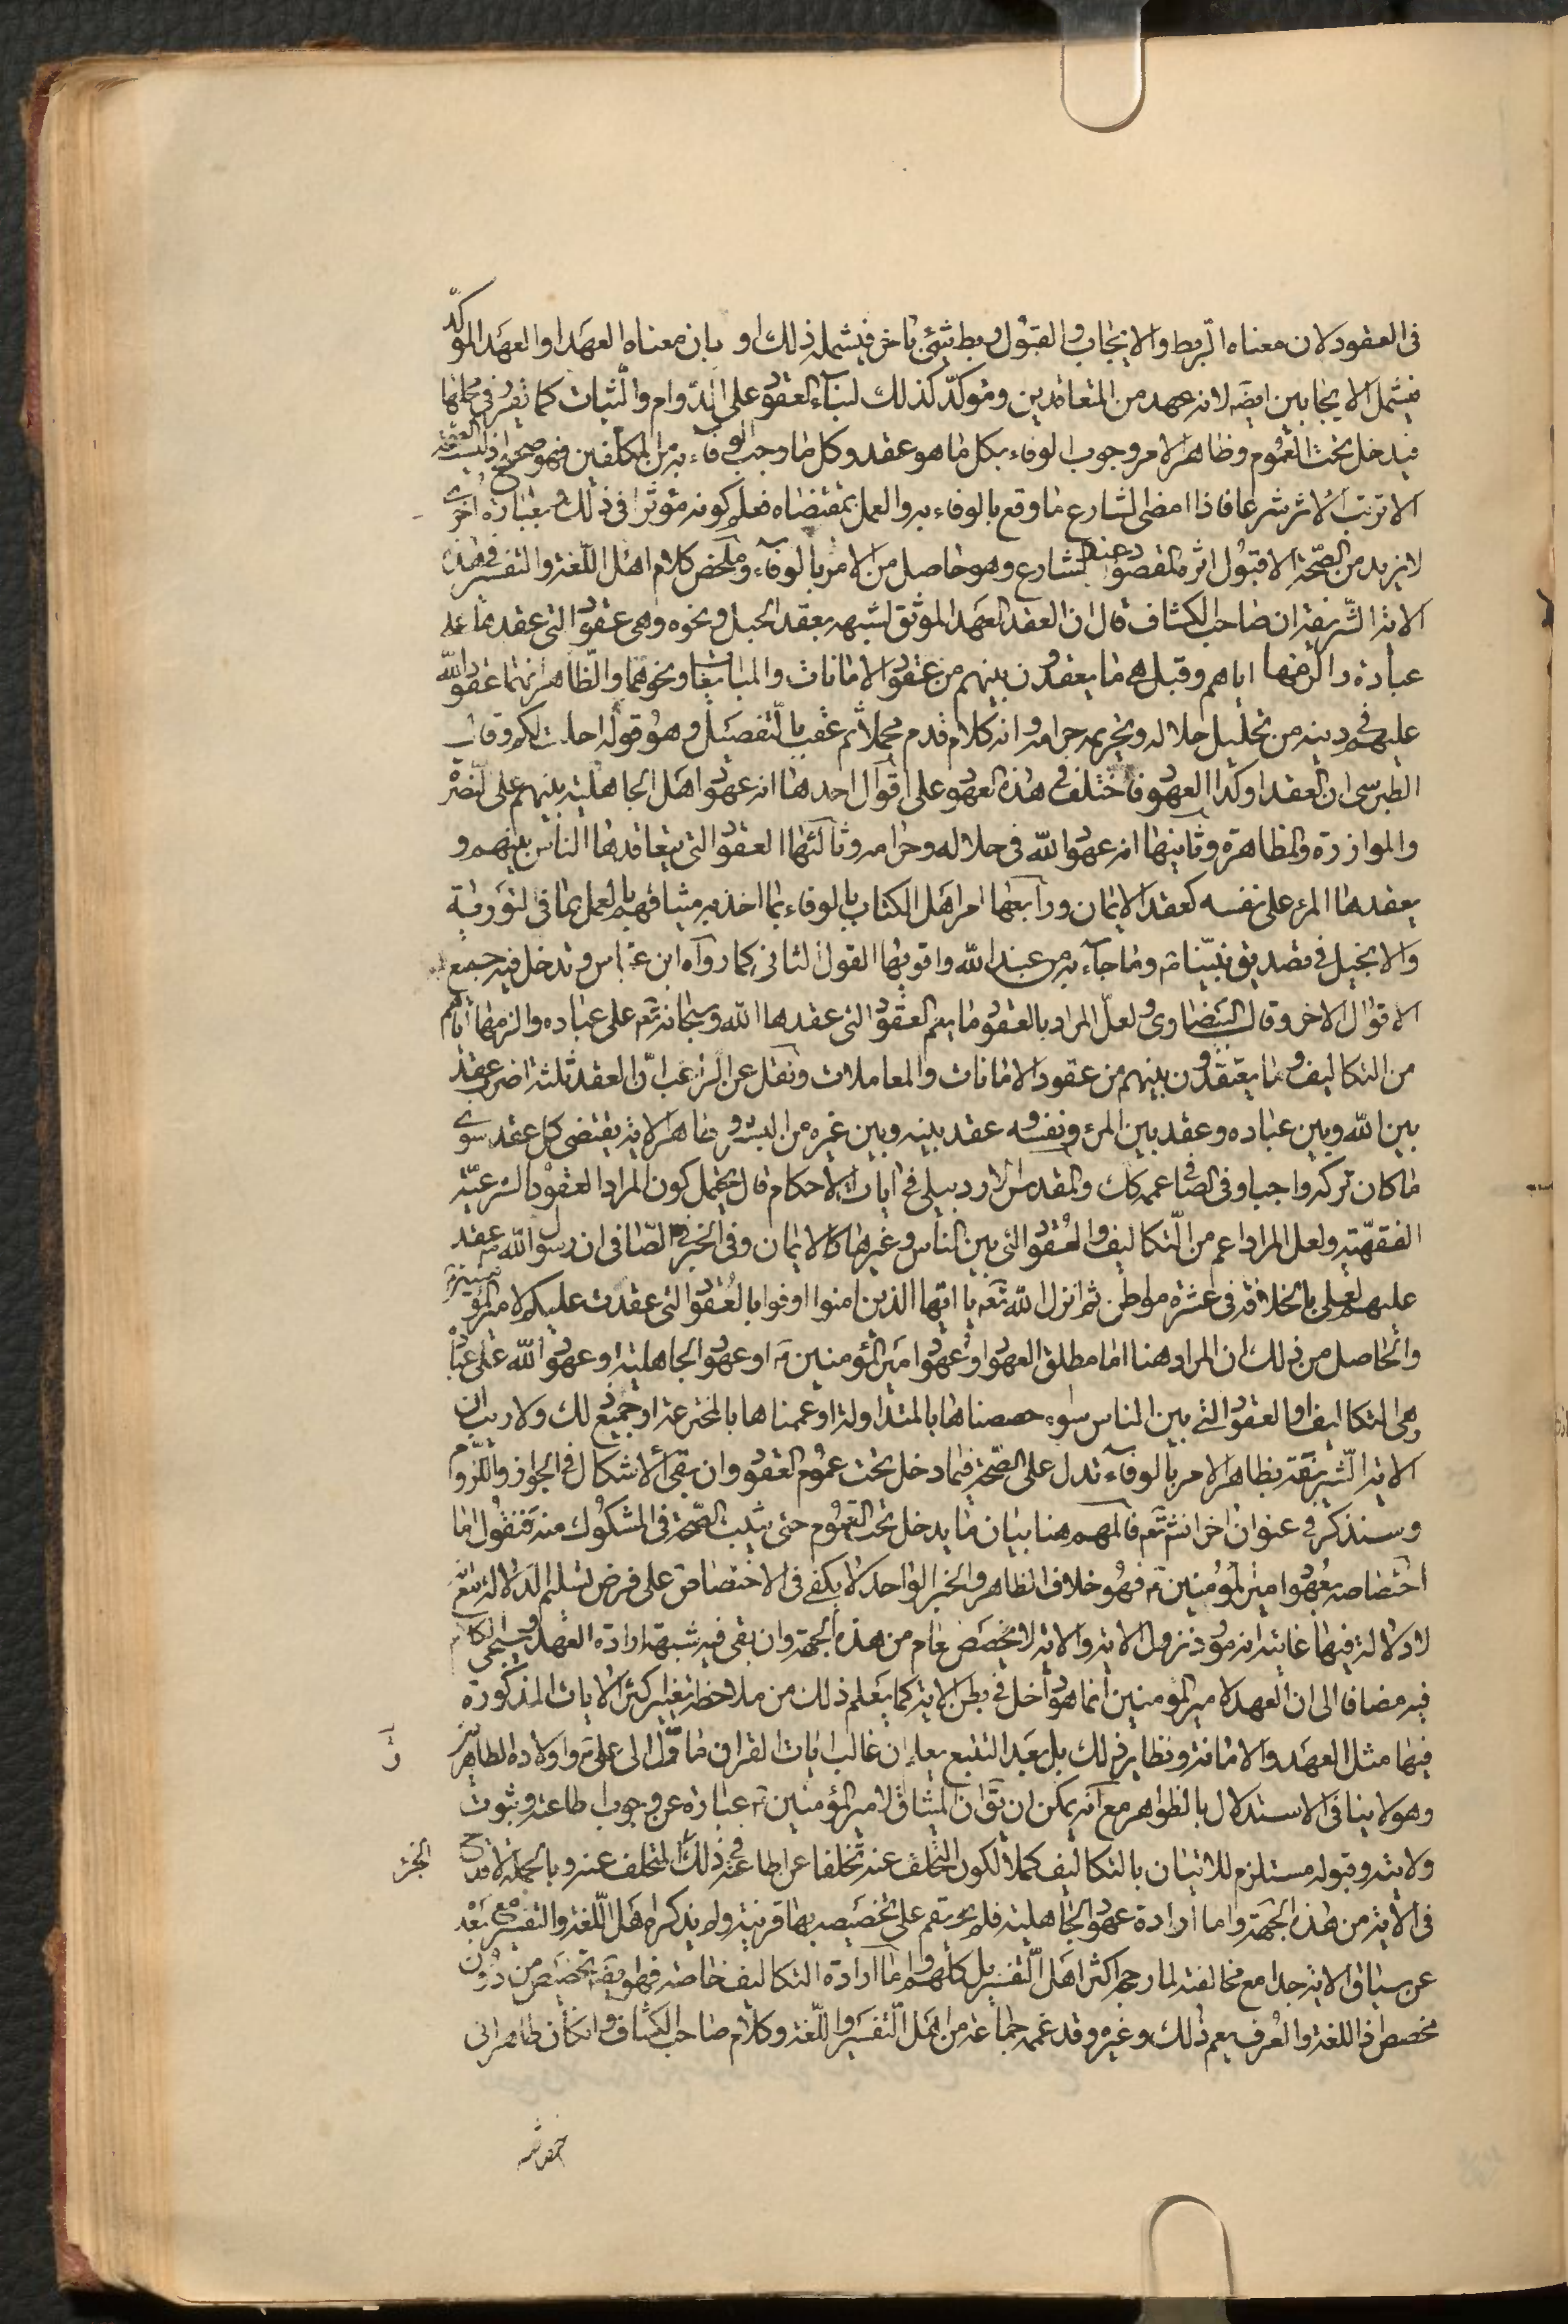 فى العقود لان معناه الربط والايجاب والقبول ربط شئ باخر فيشمله ذلك او بان معناه العهد او العهد الموكد
فيشمل الايجابين ايضه لانه عهد من المتعاقدين وموكد كذلك لبناء العقود على الدوام والثبات كما تقرر فى محلها
فيدخل تحت العموم وظاهر الامر وجوب الوفاء بكل ما هو عقد وكل ما وجب الوفاء به من المكلفين فهو صحيح اذ ليست الصحة
الا ترتب الاثر شرعا فاذا امضى الشارع ما وقع بالوفاء به والعمل بمقتضاه فعلم كونه مؤثرا فى ذلك وبعبارة اخرى
لا نريد من الصّحة الا قبول اثر المقصود عند الشارع وهو حاصل من الامر بالوفاء وملخص كلام اهل اللغة والتفسير فى هذه
الاية الشريفة ان صاحب الكشاف قال ان العقد العهد الموثق لشبهه بعقد الحبل ونحوه وهى عقود التى عقدها على
عباده والزمها اياهم وقيل هى ما يعقدون بينهم من عقود الامانات والمبايعات ونحوهما والظاهر انها عقود الله
عليهم فى دينه من تحليل حلاله وتحريم حرامه وانه كلام قدم مجملا ثم عقب بالتفصيل وهو قوله احلت لكم وقال
الطبرسى ان العقد اوكد العهود فاختلف فى هذه العهود على اقوال احدها انه عهود اهل الجاهلية بينهم على النصر
والموازرة والمظاهرة وثانيها انه عهود الله فى حلاله وحرامه وثالثها العقود التى يتعاقدها الناس بينهم و
يعقدها المرء على نفسه كعقد الايمان ورابعها امر اهل الكتاب بالوفاء بما اخذ به ميثاقهم بالعمل بما فى التورية
والانجيل فى تصديق نبينا ص وما جاء به من عند الله واقويها القول الثانى كما رواه ابن عباس وتدخل فيه جميع
الاقوال الاخر وقال البيضاوى ولعل المراد بالعقود ما يعم العقود التى عقدها الله سبحانه وتعه على عباده والزمها اياهم
من التكاليف وما يعتقدون بينهم من عقود الامانات والمعاملات ونقل عن الراغب ان العقد ثلثة اضرب عقد
بين الله وبين عباده وعقد بين المرء ونفسه وعقد بينه وبين غيره من البشر وظاهر الاية يقتضى كل عقد سوى
ما كان تركه واجبا وفى الصافى عممه كك والمقدس الاردبيلى فى ايات الاحكام قال يحتمل كون المراد العقود الشرعية
الفقهية ولعل المراد اعم من التكاليف والعقود التى بين الناس وغيرها كالايمان وفى الخبر فى الصافى ان رسول الله ص عقد
عليهم لعلى بالخلافة فى عشرة مواطن ثم انزل الله تعه يا ايها الذين امنوا اوفوا بالعقود التى عقدت عليكم لامير المؤمنين
والحاصل من ذلك ان المراد هنا اما مطلق العهود او عهود امير المؤمنين ع او عهود الجاهلية او عهود الله على عباده
وهى التكاليف او العقود التى بين الناس سواء خصصناها بالمتداولة او عممناها بالمخترعة او جميع ذلك ولا ريب ان
الاية الشريفة بظاهر الامر بالوفاء تدل على الصحة فيما دخل تحت عموم العقود وان بقى الاشكال فى الجواز واللزوم
وسنذكر فى عنوان اخر انش تعه فالمهم هنا بيان ما يدخل تحت العموم حتى يثبت الصحة فى المشكوك منه فنقول اما
اختصاصه بعهود امير المؤمنين ع فهو خلاف الظاهر والخبر الواحد لا يكفى فى الاختصاص على فرض تسليم الدلالة مع
ان لا دلالة فيها غايته انه مورد نزول الاية والاية لا يخصص عام من هذه الجهة وان بقى فيه شبهة ارادة العهد وسيجئ الكلام
فيه مضافا الى ان العهد لامير المؤمنين انما هو داخل فى بطن الاية كما يعلم ذلك من ملاحظة تفسير كثير الايات المذكورة
فيها مثل العهد والامانة ونظاير ذلك بل بعد التتبع يعلم ان غالب ايات القران مأول الى على ع واولاده الطاهرين
وهو لا ينافى الاستدلال بالظواهر مع انه يمكن ان يق ان الميثاق لامير المؤمنين ع عبارة عن وجوب اطاعته وثبوت
ولايته وقبوله مستلزم للاتيان بالتكاليف كملا لكون التخلف عنه تخلفا عن اطاعته فى ذلك المتخلف عنه وبالجملة لا قدح
فى الاية من هذه الجهة واما ارادة عهود الجاهلية فلم يقم على تخصيصه بها قرينة ولم يذكره اهل اللغة والتفسير مع بعده
عن سياق الاية جدا مع مخالفته لما رجحه اكثر اهل التفسير بل كلهم واما ارادة التكاليف خاصة فهو ايضه تخصيص من دون
مخصص اذ اللغة والعرف يعم ذلك وغيره وقد عممه جماعة من اهل التفسير واللغة وكلام صاحب الكشاف وان كان ظاهرا فى